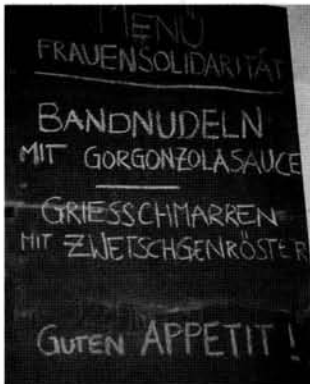 MENÜ
FRAUENSOLIDARITÄT
BANDNUDELN
MIT GORGONZOLASAUCE
GRIESSCHMARREN
MIT ZWETSCHGENRÖSTER
GUTEN APPETIT!